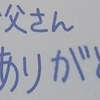 父さん
ありが